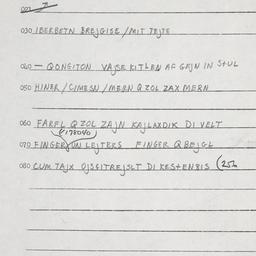 030 IBERBETN BREJGISE / MIT TEJTE
040 — QONGITON VAJSE KITLEN AF GEJN IN STUL
050 HINER / CIMESN / MERN Q ZOL ZAX MERN
060 FAREL Q ZOL ZAJN KAJLAXDIK DI VELT
(178040)
070 FINGER FUN LEJTERS FINGER Q BEJGL
080 CUM TAJX OJSGITREJSLT DI KESTENEIS (25h